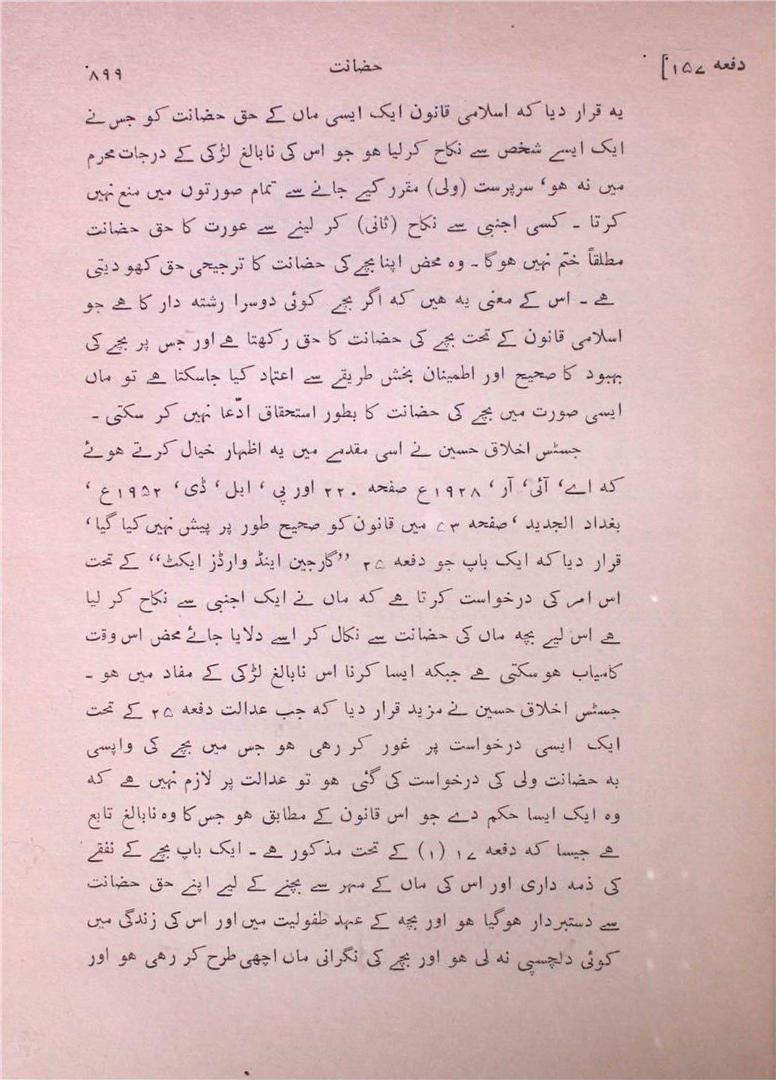 دفعہ ۱۵۷] حضانت ۸۹۹
یہ قرار دیا کہ اسلامی قانون ایک ایسی ماں کے حق حضانت کو جس نے
ایک ایسے شخص سے نکاح کرلیا ھو جو اس کی نابالغ لڑکی کے درجات محرم
میں نہ ھو، سرپرست (ولی) مقرر کیے جانے سے تمام صورتوں میں منع نہیں
کرتا ۔ کسی اجنبی سے نکاح (ثانی) کر لینے سے عورت کا حق حضانت
مطلقاً ختم نہیں ھوگا ۔ وہ محض اپنا بچے کی حضانت کا ترجیحی حق کھو دیتی
ھے ۔ اس کے معنی یہ ھیں کہ اگر بچے کوئی دوسرا رشتہ دار کا ھے جو
اسلامی قانون کے تحت بچے کی حضانت کا حق رکھتا ھے اور جس پر بچے کی
بہبود کا صحیح اور اطمینان بخش طریقے سے اعتماد کیا جاسکتا ھے تو ماں
ایسی صورت میں بچے کی حضانت کا بطور استحقاق ادّعا نہیں کر سکتی ۔
جسٹس اخلاق حسین نے اسی مقدمے میں یہ اظہار خیال کرتے ھوئے
کہ اے، آئی، آر، ۱۹۲۸ع صفحہ ۲۲۰ اور پی، ایل، ڈی، ۱۹۵۲ع،
بغداد الجدید، صفحہ ۷۳ میں قانون کو صحیح طور پر پیش نہیں کیا گیا،
قرار دیا کہ ایک باپ جو دفعہ ۲۵ ”گارجین اینڈ وارڈز ایکٹ“ کے تحت
اس امر کی درخواست کرتا ھے کہ ماں نے ایک اجنبی سے نکاح کر لیا
ھے اس لیے بچہ ماں کی حضانت سے نکال کر اسے دلایا جائے محض اس وقت
کامیاب ھو سکتی ھے جبکہ ایسا کرنا اس نابالغ لڑکی کے مفاد میں ھو ۔
جسٹس اخلاق حسین نے مزید قرار دیا کہ جب عدالت دفعہ ۲۵ کے تحت
ایک ایسی درخواست پر غور کر رھی ھو جس میں بچے کی واپسی
بہ حضانت ولی کی درخواست کی گئی ھو تو عدالت پر لازم نہیں ھے کہ
وہ ایک ایسا حکم دے جو اس قانون کے مطابق ھو جس کا وہ نابالغ تابع
ھے جیسا کہ دفعہ ۱۷ (۱) کے تحت مذکور ھے ۔ ایک باپ بچے کے نفقے
کی ذمہ داری اور اس کی ماں کے مہر سے بچنے کے لیے اپنے حق حضانت
سے دستبردار ھوگیا ھو اور بچہ کے عہد طفولیت میں اور اس کی زندگی میں
کوئی دلچسپی نہ لی ھو اور بچے کی نگرانی ماں اچھی طرح کر رھی ھو اور